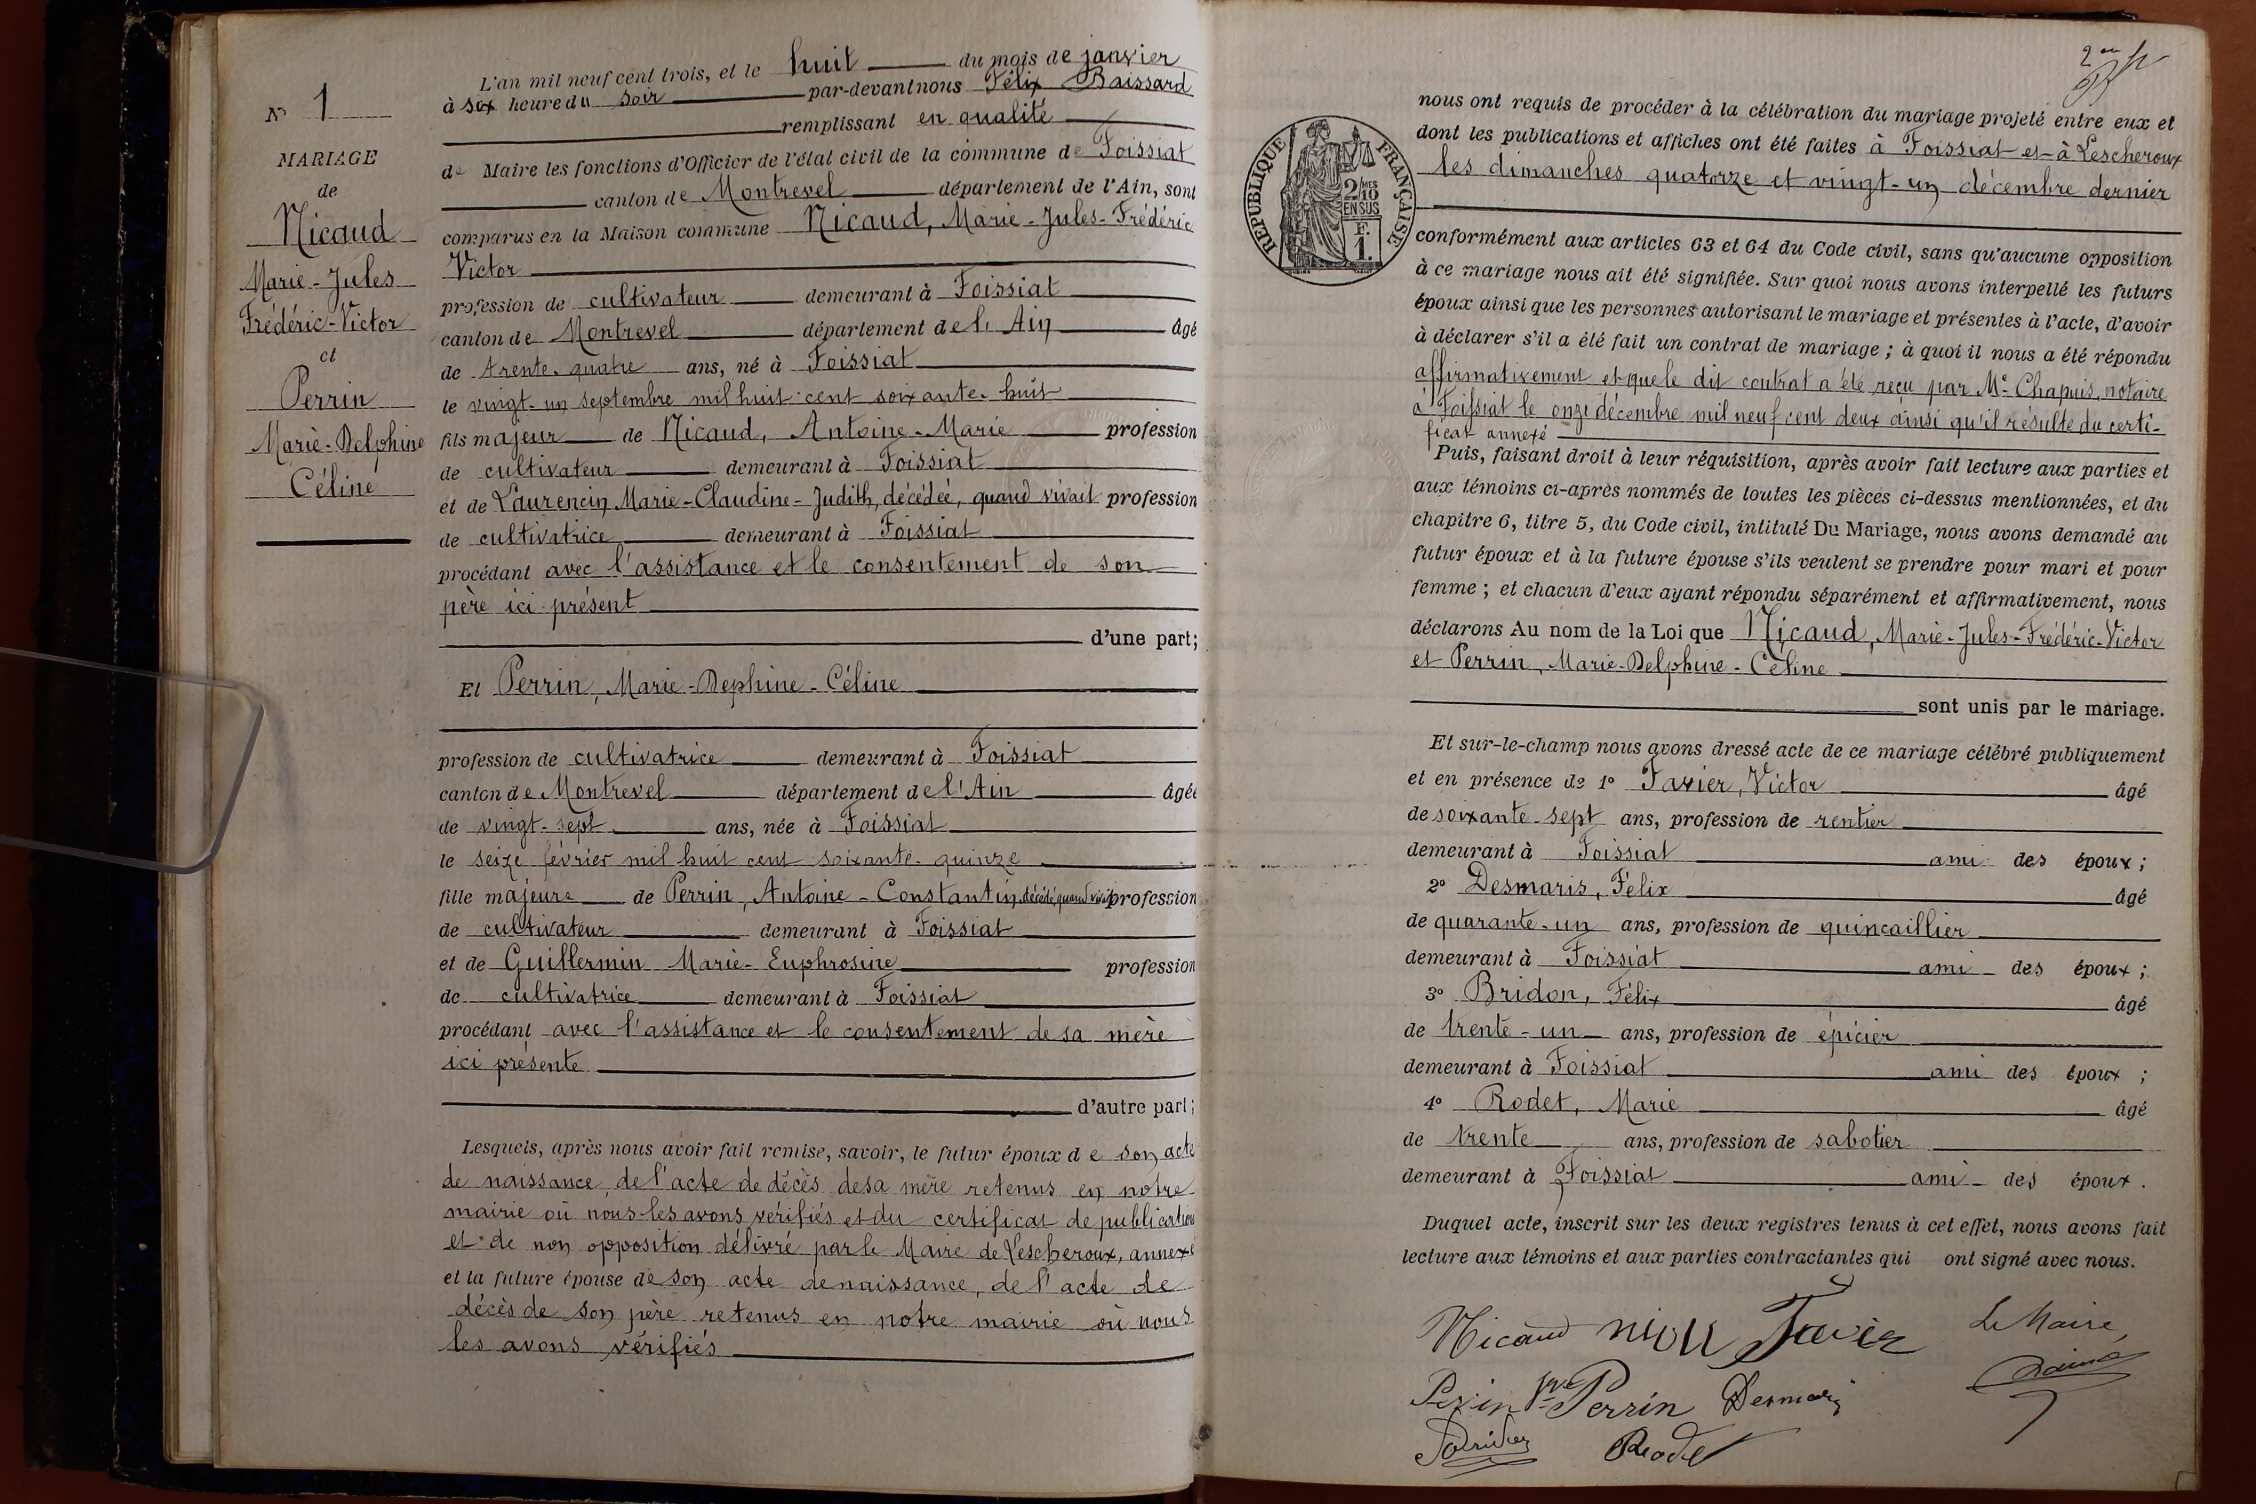 N° 1
MARIAGE
de
Nicaud
Marie-Jules
Frédéric-Victor
et
Perrin
Marie-Delphine
Céline
L'an mil neuf cent trois, et le huit du mois de janvier
à six heure du soir par-devant nous Félix Baissard
remplissant en qualité
de Maire les fonctions d'Officier de l'état civil de la commune de Foissiat
canton de Montrevel département de l'Ain, sont
comparus en la Maison commune Nicaud, Marie-Jules-Frédéric
Victor
profession de cultivateur demeurant à Foissiat
canton de Montrevel département de l'Ain âgé
de trente-quatre ans, né à Foissiat
le vingt-un septembre mil huit cent soixante-huit
fils majeur de Nicaud, Antoine-Marie profession
de cultivateur demeurant à Foissiat
et de Laurencin, Marie-Claudine-Judith, décédée, quand vivait profession
de cultivatrice demeurant à Foissiat
procédant avec l'assistance et le consentement de son
père ici présent
d'une part;
Et Perrin, Marie-Dephine-Céline
profession de cultivatrice demeurant à Foissiat
canton de Montrevel département de l'Ain âgée
de vingt-sept ans, née à Foissiat
le seize février mil huit cent soixante-quinze
fille majeure de Perrin, Antoine-Constantin, décédé, quand vivait profession
de cultivateur demeurant à Foissiat
et de Guillermin Marie-Euphrosine profession
de cultivatrice demeurant à Foissiat
procédant avec l'assistance et le consentement de sa mère
ici présente
d'autre part;
Lesquels, après nous avoir fait remise, savoir, le futur époux de son acte
de naissance, de l'acte de décès de sa mère retenus en notre
mairie où nous les avons vérifiés et du certificat de publication
et de non opposition délivré par le Maire de Lescheroux, annexé
et la future épouse de son acte de naissance, de l'acte de
décès de son père retenus en notre mairie où nous
les avons vérifiés
RÉPUBLIQUE FRANÇAISE
2/10 MES
EN SUS
F.
1.
nous ont requis de procéder à la célébration du mariage projeté entre eux et
dont les publications et affiches ont été faites à Foissiat et à Lescheroux
les dimanches quatorze et vingt-un décembre dernier
conformément aux articles 63 et 64 du Code civil, sans qu'aucune opposition
à ce mariage nous ait été signifiée. Sur quoi nous avons interpellé les futurs
époux ainsi que les personnes autorisant le mariage et présentes à l'acte, d'avoir
à déclarer s'il a été fait un contrat de mariage ; à quoi il nous a été répondu
affirmativement et que le dit contrat a été reçu par Me Chapuis, notaire
à Foissiat le onze décembre mil neuf cent deux ainsi qu'il résulte du certi-
ficat annexé
Puis, faisant droit à leur réquisition, après avoir fait lecture aux parties et
aux témoins ci-après nommés de toutes les pièces ci-dessus mentionnées, et du
chapitre 6, titre 5, du Code civil, intitulé Du Mariage, nous avons demandé au
futur époux et à la future épouse s'ils veulent se prendre pour mari et pour
femme ; et chacun d'eux ayant répondu séparément et affirmativement, nous
déclarons Au nom de la Loi que Nicaud, Marie-Jules-Frédéric-Victor
et Perrin, Marie-Delphine-Céline
sont unis par le mariage.
Et sur-le-champ nous avons dressé acte de ce mariage célébré publiquement
et en présence de 1° Favier, Victor âgé
de soixante-sept ans, profession de rentier
demeurant à Foissiat ami des époux ;
2° Desmaris, Félix âgé
de quarante-un ans, profession de quincaillier
demeurant à Foissiat ami des époux ;
3° Bridon, Félix âgé
de trente-un ans, profession de épicier
demeurant à Foissiat ami des époux ;
4° Rodet, Marie âgé
de trente ans, profession de sabotier
demeurant à Foissiat ami des époux.
Duquel acte, inscrit sur les deux registres tenus à cet effet, nous avons fait
lecture aux témoins et aux parties contractantes qui ont signé avec nous.
Nicaud Favier Le Maire,
Perrin Desmaris
Rodet